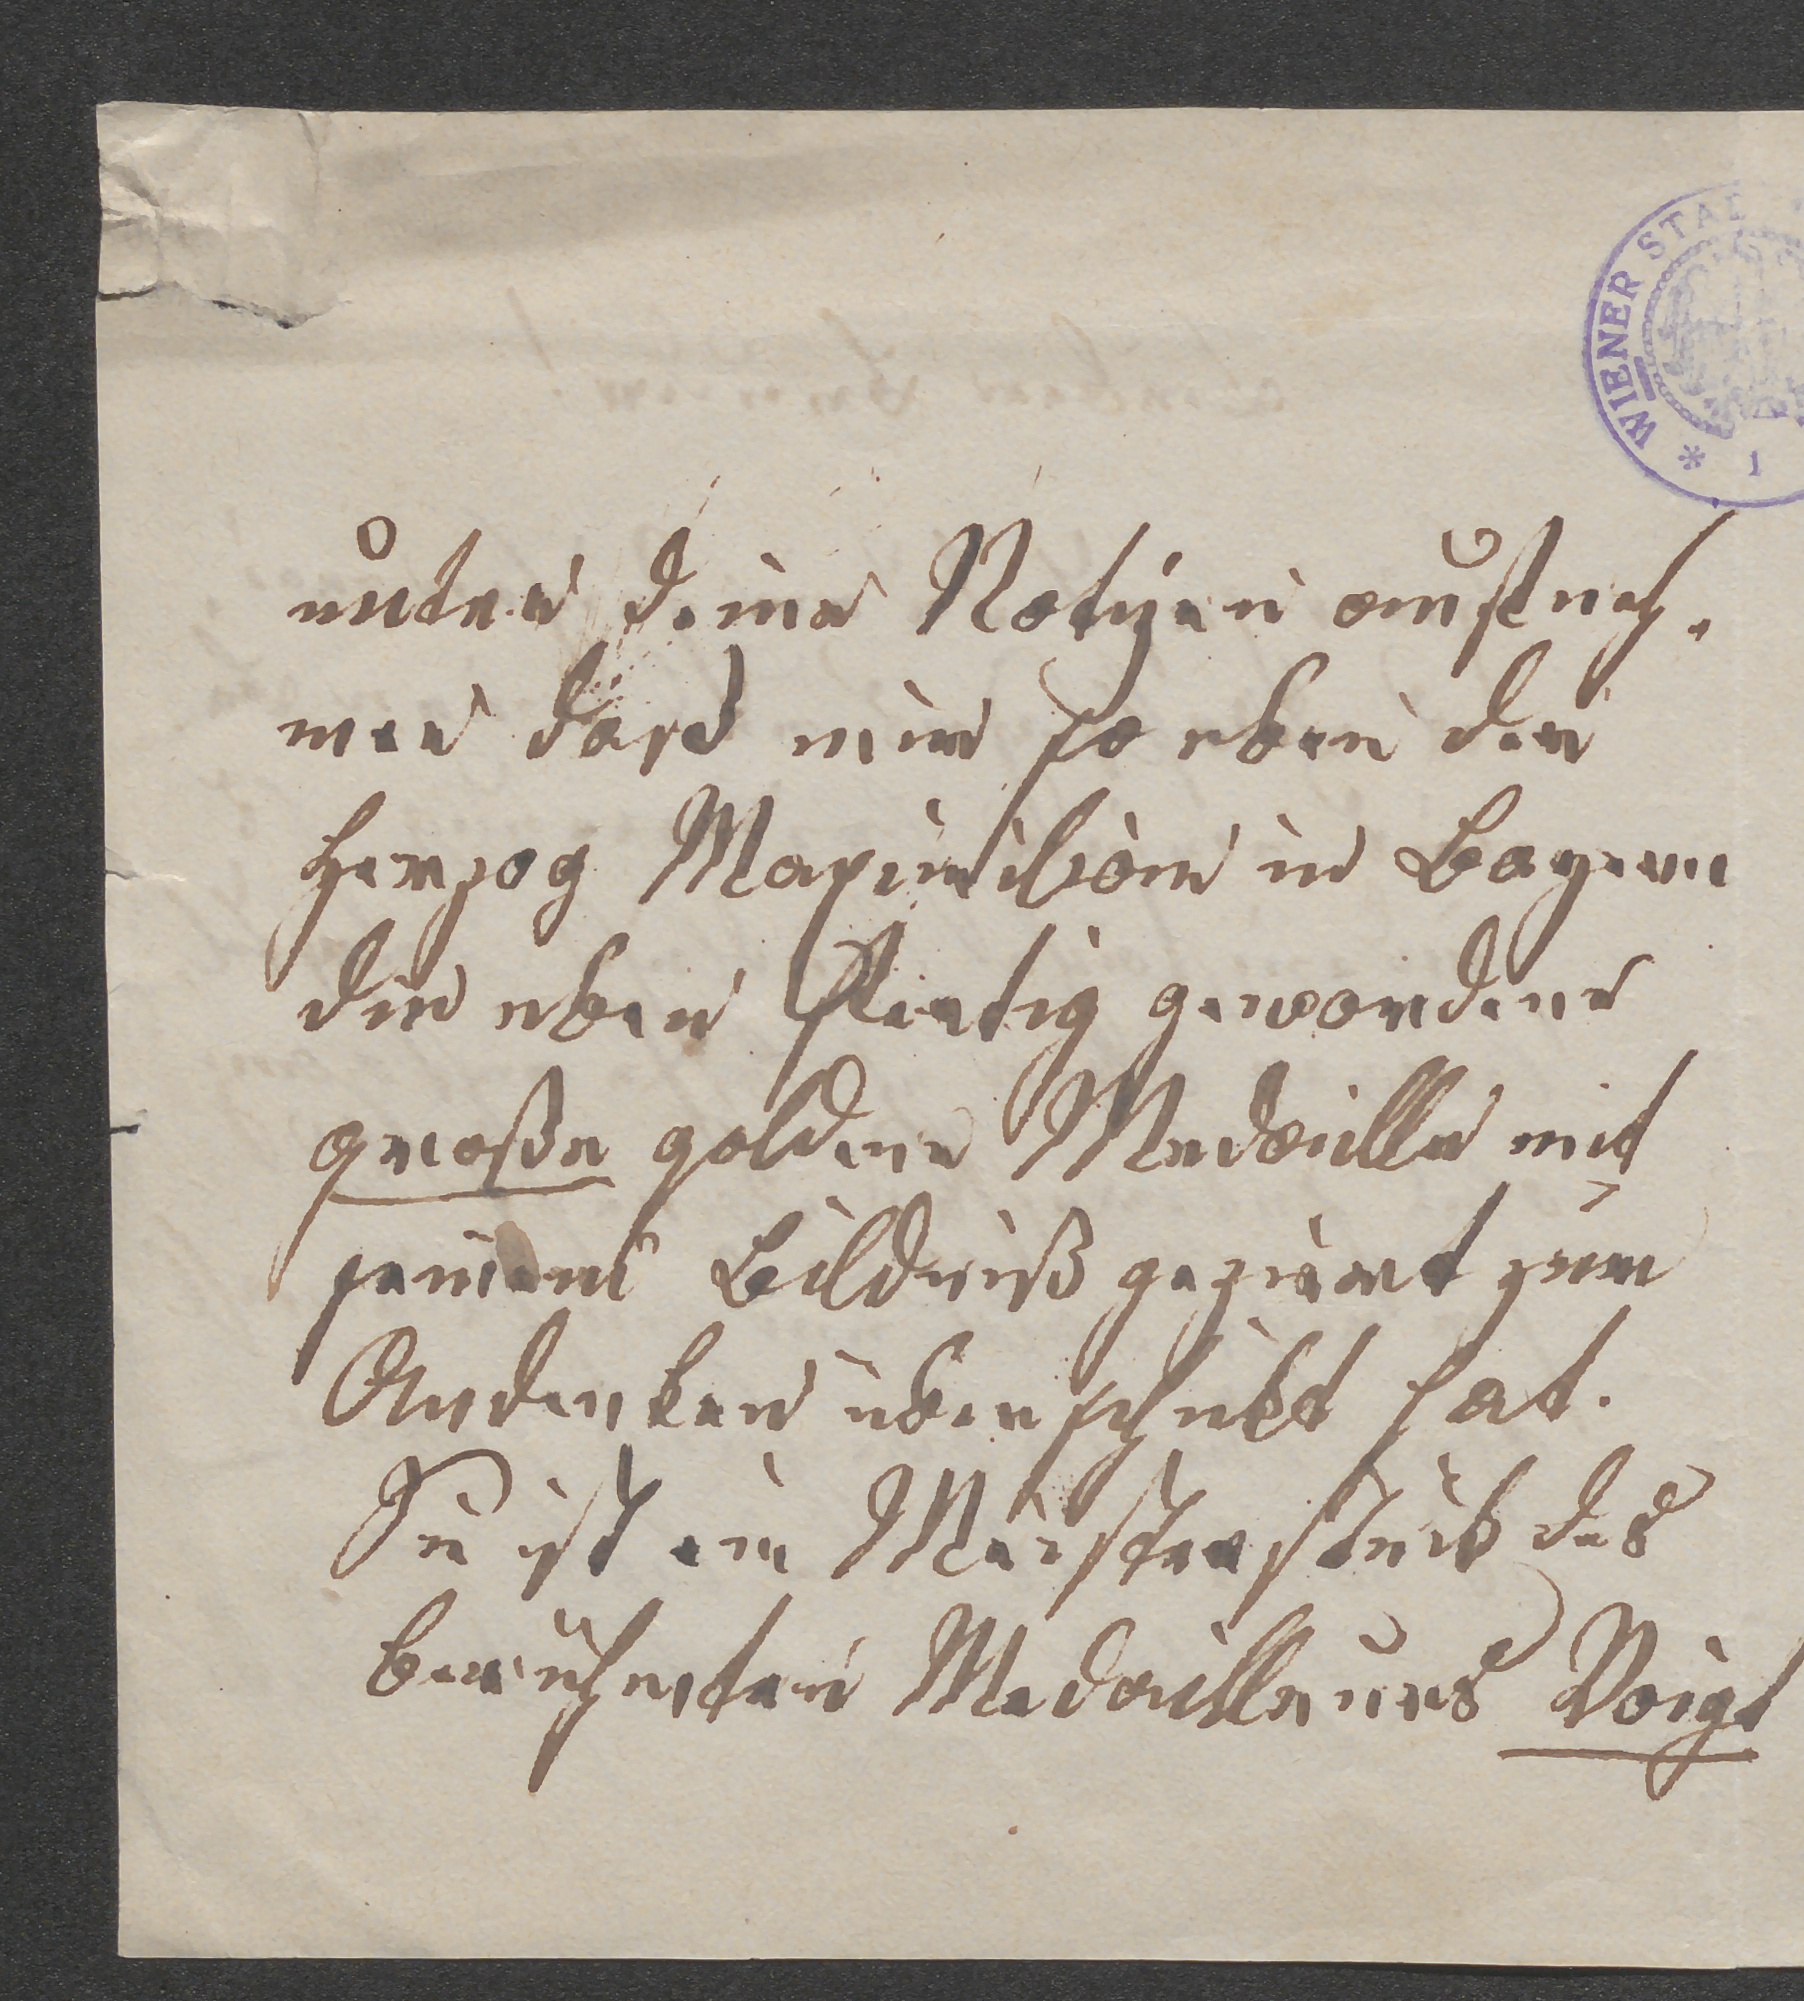 WIENER STAD
* 1
unter deine Notizen aufneh-
men daß mir so eben der
Herzog Maximilian in Bayern
die eben fertig gewordene
große goldene Medaille mit
seinem Bildniß geziert zum
Andenken überschickt hat.
Sie ist ein Meisterstück des
berühmten Medailleurs Voigt